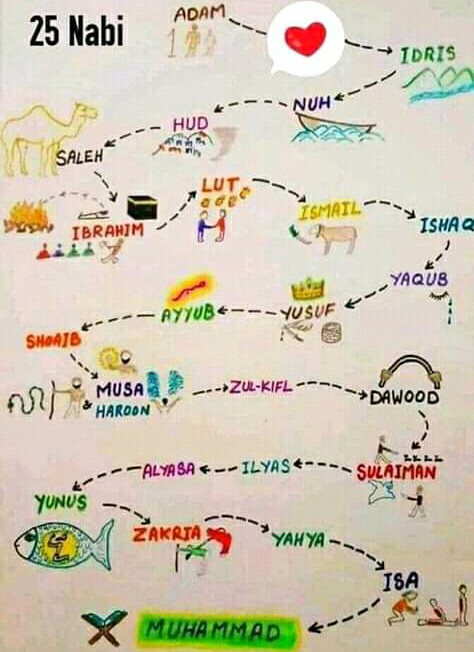 25 Nabi
ADAM
IDRIS
NUH
HUD
SALEH
IBRAHIM
LUT
ISMAIL
ISHAQ
YAQUB
YUSUF
AYYUB
SHOAIB
MUSA
& HAROON
ZUL-KIFL
DAWOOD
SULAIMAN
ILYAS
ALYASA
YUNUS
ZAKRIA
YAHYA
ISA
MUHAMMAD